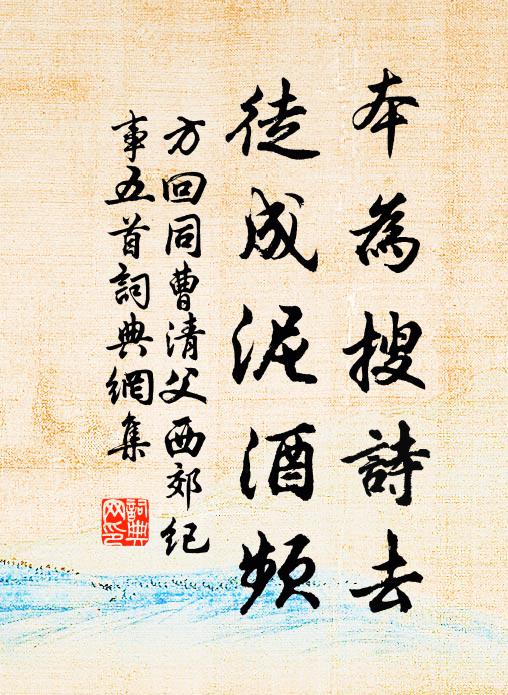 本為搜詩去
徒成泥酒頻
方回同曹清父西郊紀
事五首詞典網集
詞典
網印